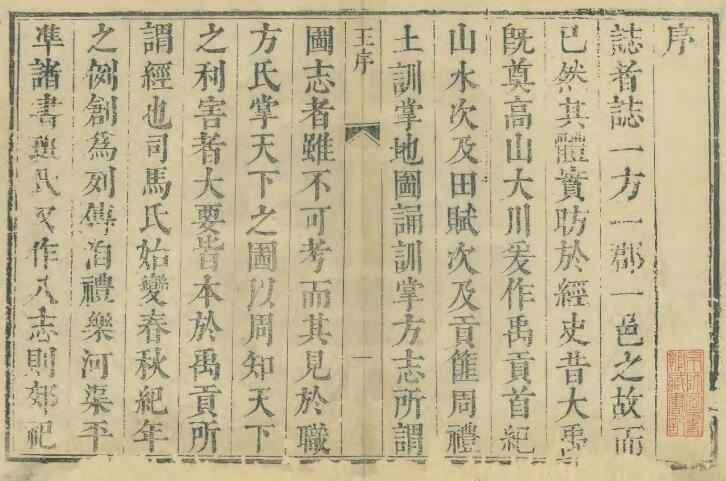 序
誌者誌一方一郡一邑之故而
已然其體實昉於經史昔大禹
既奠高山大川爰作禹貢首紀
山水次及田賦次及貢篚周禮
土訓掌地圖誦訓掌方志所謂
王序
一
圖志者雖不可考而其見於職
方氏掌天下之圖以周知天下
之利害者大要皆本於禹貢所
謂經也司馬氏始變春秋紀年
之例創為列傳洎禮樂河渠平
準諸書班氏又作八志則郊祀